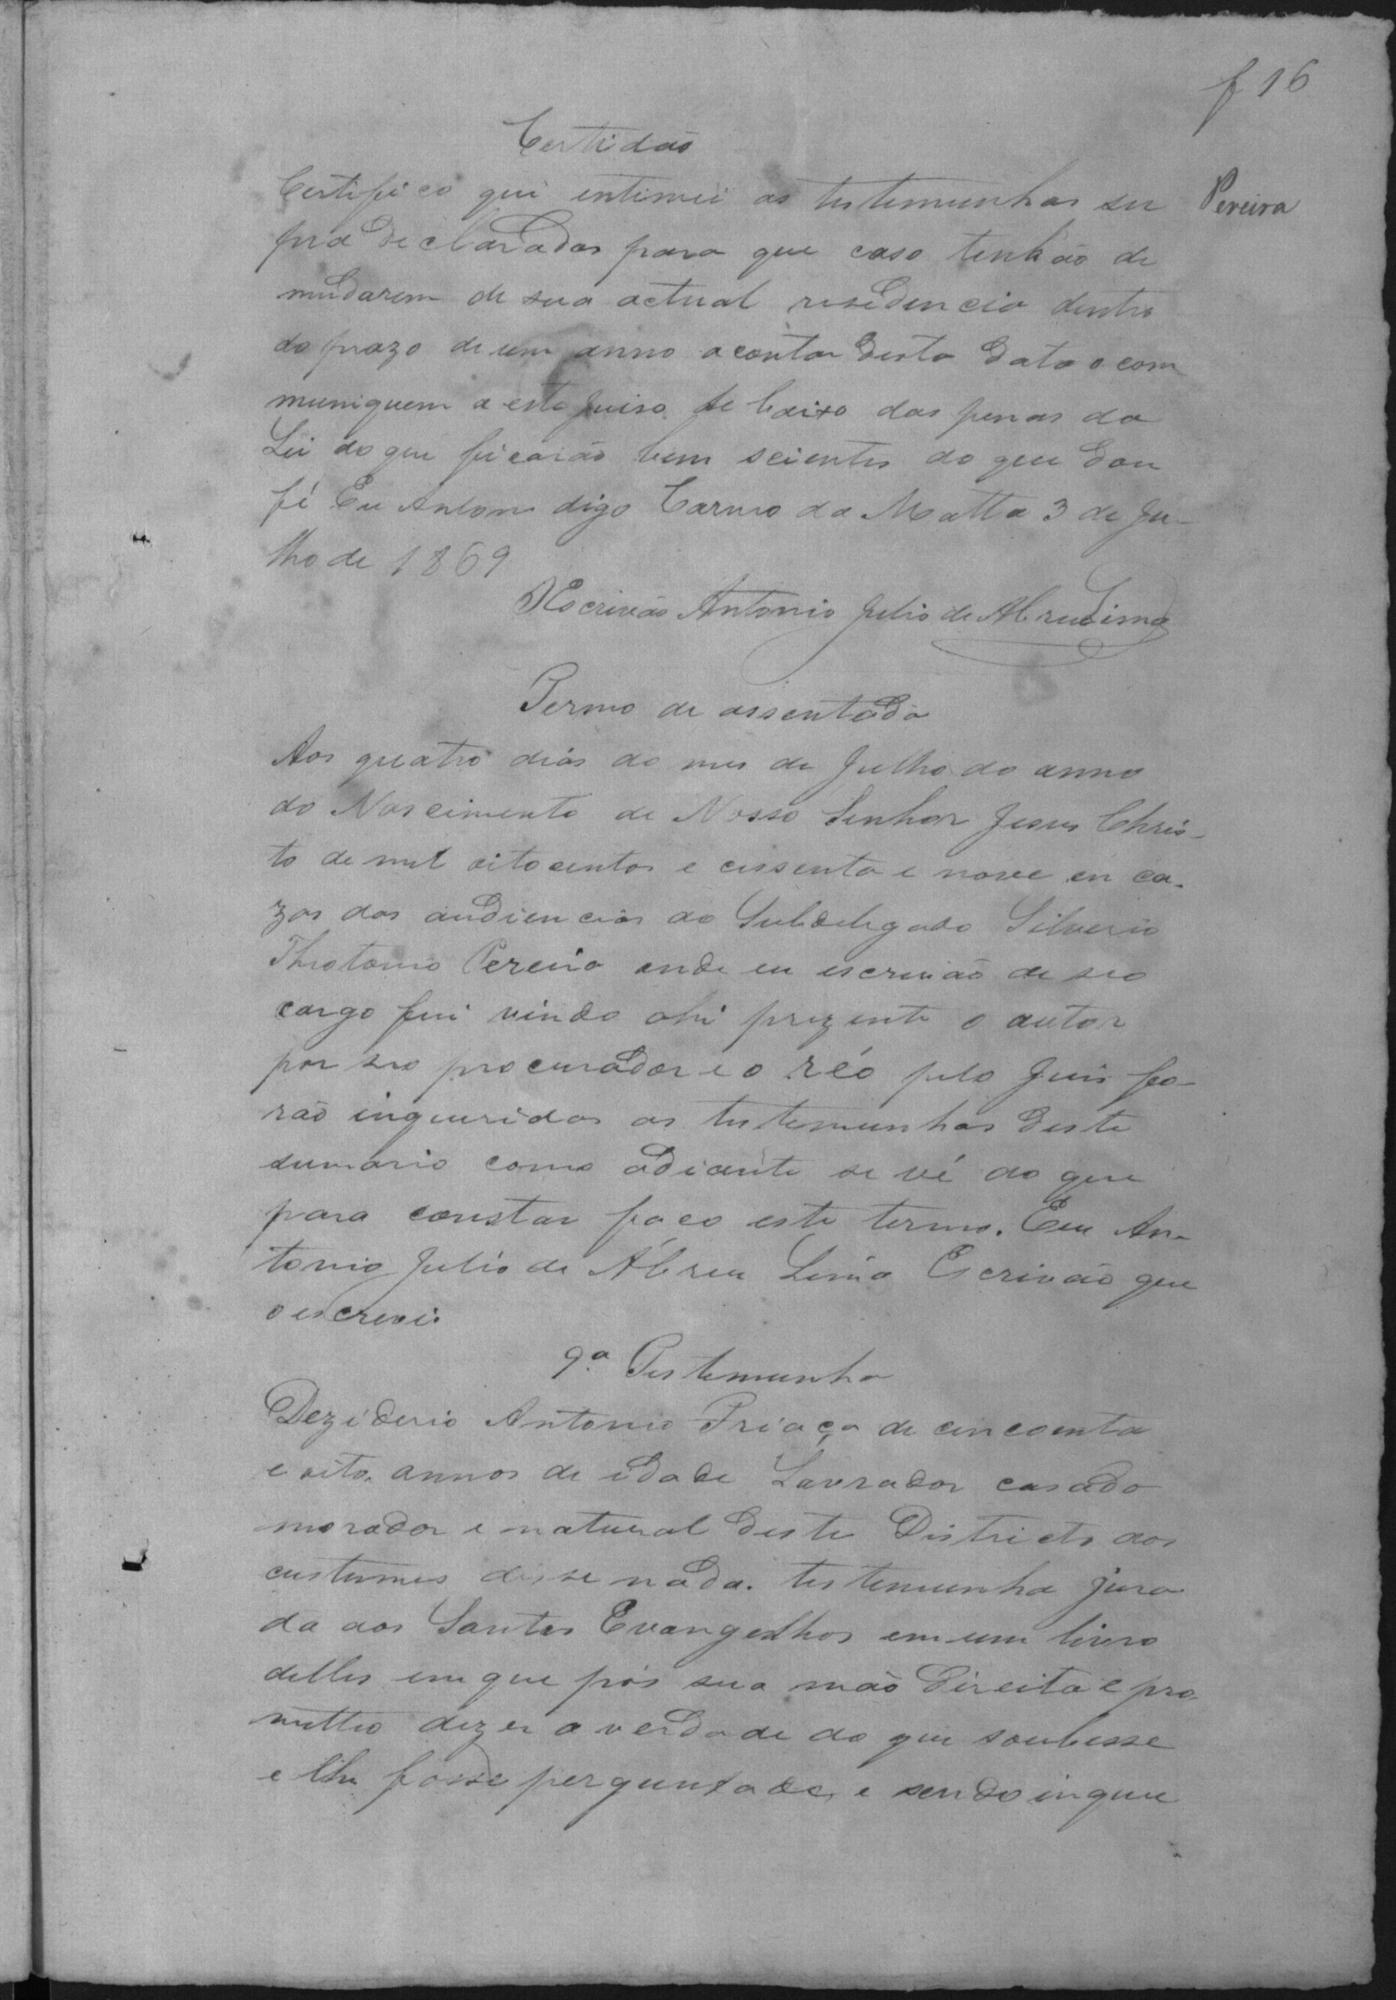 f 16
Certidão
Certifico que intimei as testemunhas su
Pereira
pra declaradas para que caso tenhão de
mudarem de sua actual residencia dentro
do prazo de um anno a contar desta data o com
muniquem a este Juiso de baixo das penas da
Lei do que ficarão bem scientes do que dou
fé Eu Antoni digo Carmo da Matta 3 de Ju-
lho de 1869
O Escrivão Antonio Julio de Abreu Lima
Termo de assentada
Aos quatro dias do mes de Julho do anno
do Nascimento de Nosso Senhor Jesus Chris-
to de mil oitocentos e cessenta e nove en ca-
zas das audiencias do Subdelegado Silverio
Theotonio Pereira onde eu escrivão de seo
cargo fui vindo ahi prezente o autor
por seo procurador e o réo pelo Juis fo-
rão inqueridas as testemunhas deste
sumario como adiante se vé do que
para constar faco este termo. Eeu An-
tonio Julio de Abreu Lima Escrivão que
o escrevi.
9.ª Testemunha
Deziderio Antonio Triaça de cincoenta
e oito annos de idade Lavrador casado
morador e natural deste Districto aos
custumes disse nada. testemunha jura
da aos Santos Evangelhos em um livro
delles em que pós sua mão direita e pro
mitteo dizer a verdade do que soubesse
e lhe fosse perguntado, e sendo inque